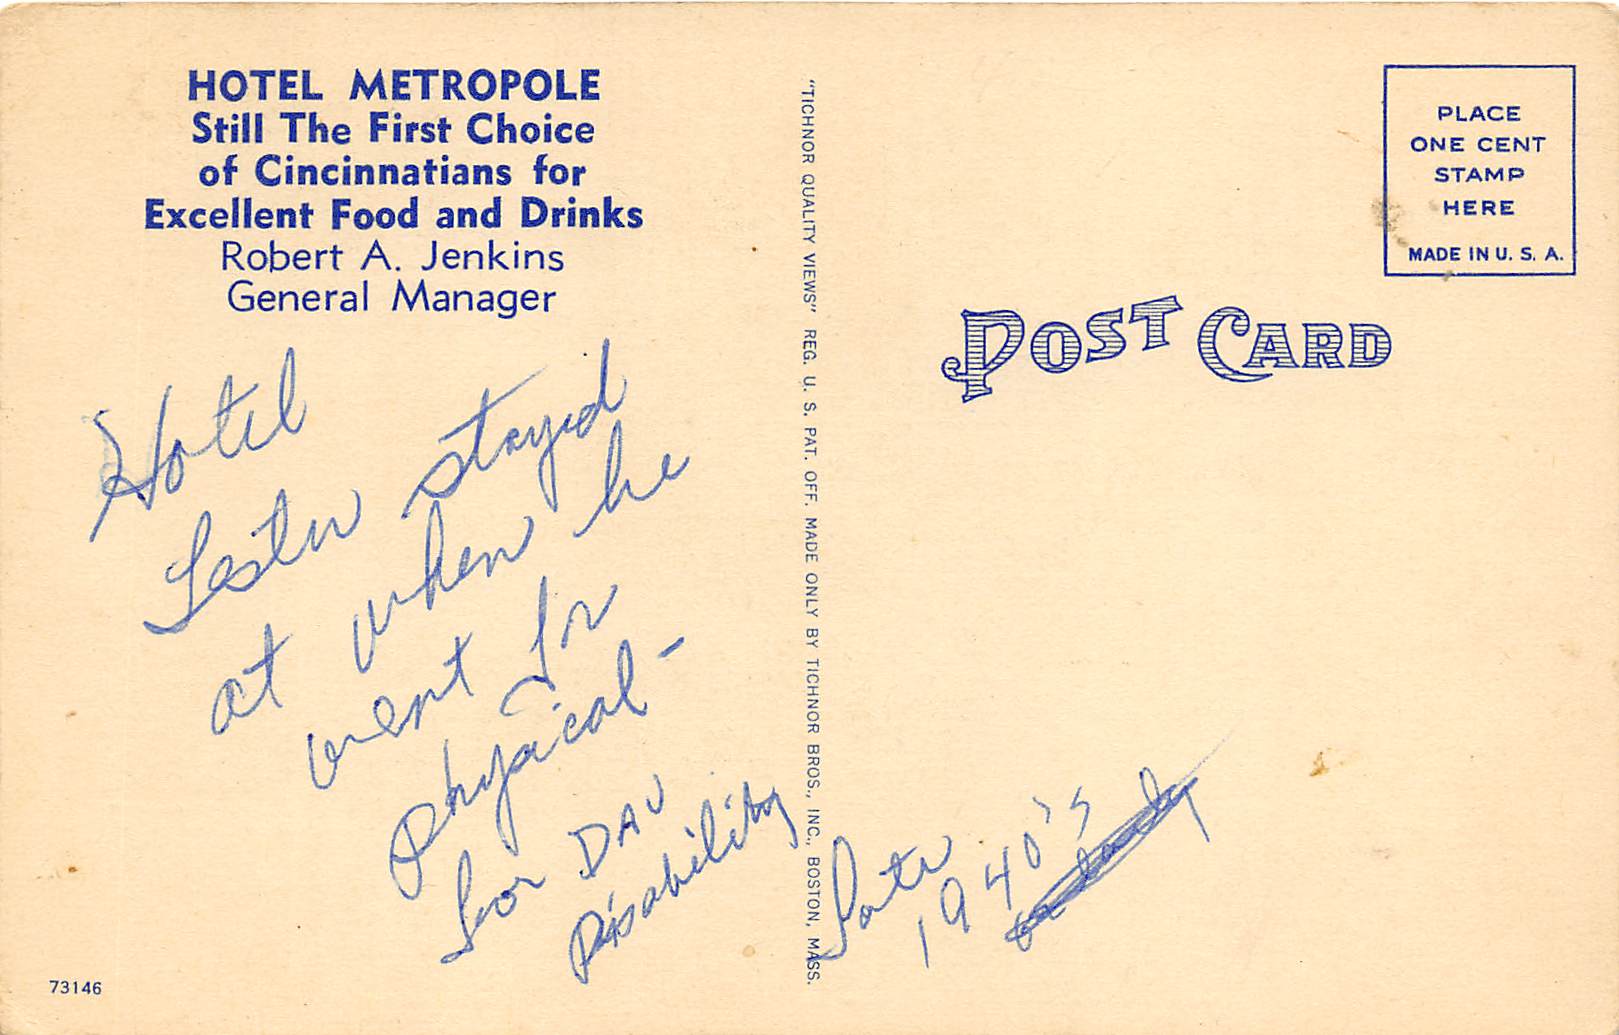 HOTEL METROPOLE
Still The First Choice
of Cincinnatians for
Excellent Food and Drinks
Robert A. Jenkins
General Manager
Hotel
Lester stayed
at when he
went for
physical -
for DAV
Disability
Later
1940's
73146
"TICHNOR QUALITY VIEWS" REG. U. S. PAT. OFF. MADE ONLY BY TICHNOR BROS., INC., BOSTON, MASS.
PLACE
ONE CENT
STAMP
HERE
MADE IN U. S. A.
POST CARD